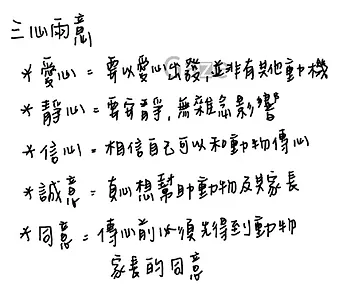 三心兩意
*愛心=要以愛心出發,並非有其他動機
*靜心=要安靜,無雜念影響
*信心=相信自己可以和動物傳心
*誠意=真心想幫助動物及其家長
*同意=傳心前必須先得到動物
家長的同意